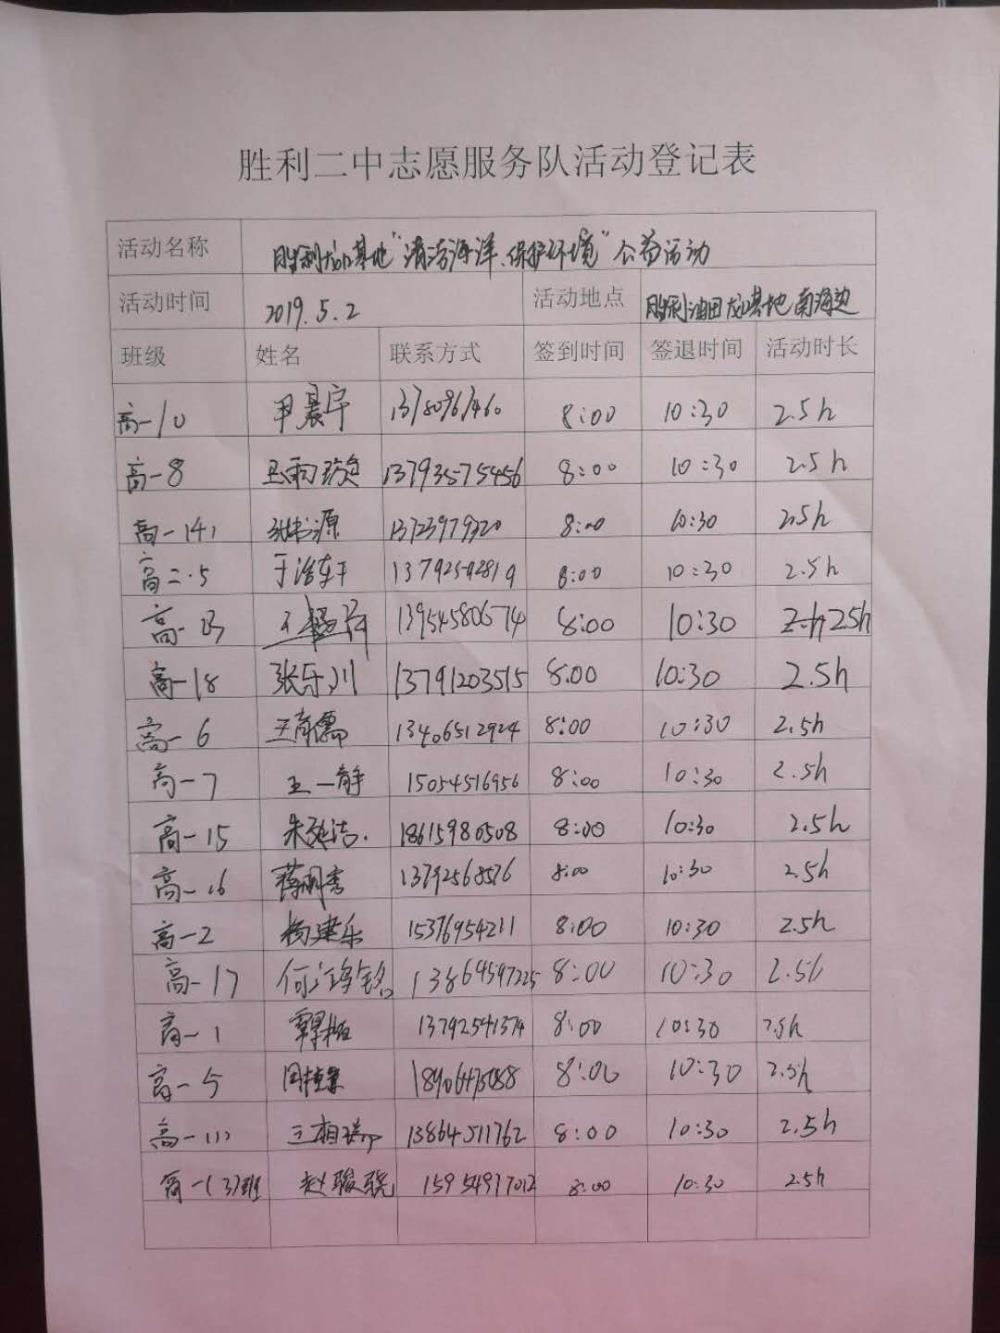 胜利二中志愿服务队活动登记表
活动名称 "清洁海洋、保护环境"公益活动
活动时间 2019.5.2 活动地点 胜利油田龙口基地南海边
班级 姓名 联系方式 签到时间 签退时间 活动时长
高一10 尹晨宇 8:00 10:30 2.5h
高一8 13793575456 8:00 10:30 2.5h
高一 张书源 8:00 10:30 2.5h
高二.5 13792592819 8:00 10:30 2.5h
高一13 13954580674 8:00 10:30 2.5h
高一18 张乐川 13791203515 8:00 10:30 2.5h
高一6 王育儒 13406512924 8:00 10:30 2.5h
高一7 王一静 15054516956 8:00 10:30 2.5h
高一15 朱延洁 18615980508 8:00 10:30 2.5h
高一16 13792568576 8:00 10:30 2.5h
高一2 杨建乐 15376954211 8:00 10:30 2.5h
高一17 13864597225 8:00 10:30 2.5h
高一1 13792541374 8:00 10:30 2.5h
高一5 8:00 10:30 2.5h
高一 王相瑞 13864511762 8:00 10:30 2.5h
高一(3)班 赵骏骁 15954917012 8:00 10:30 2.5h